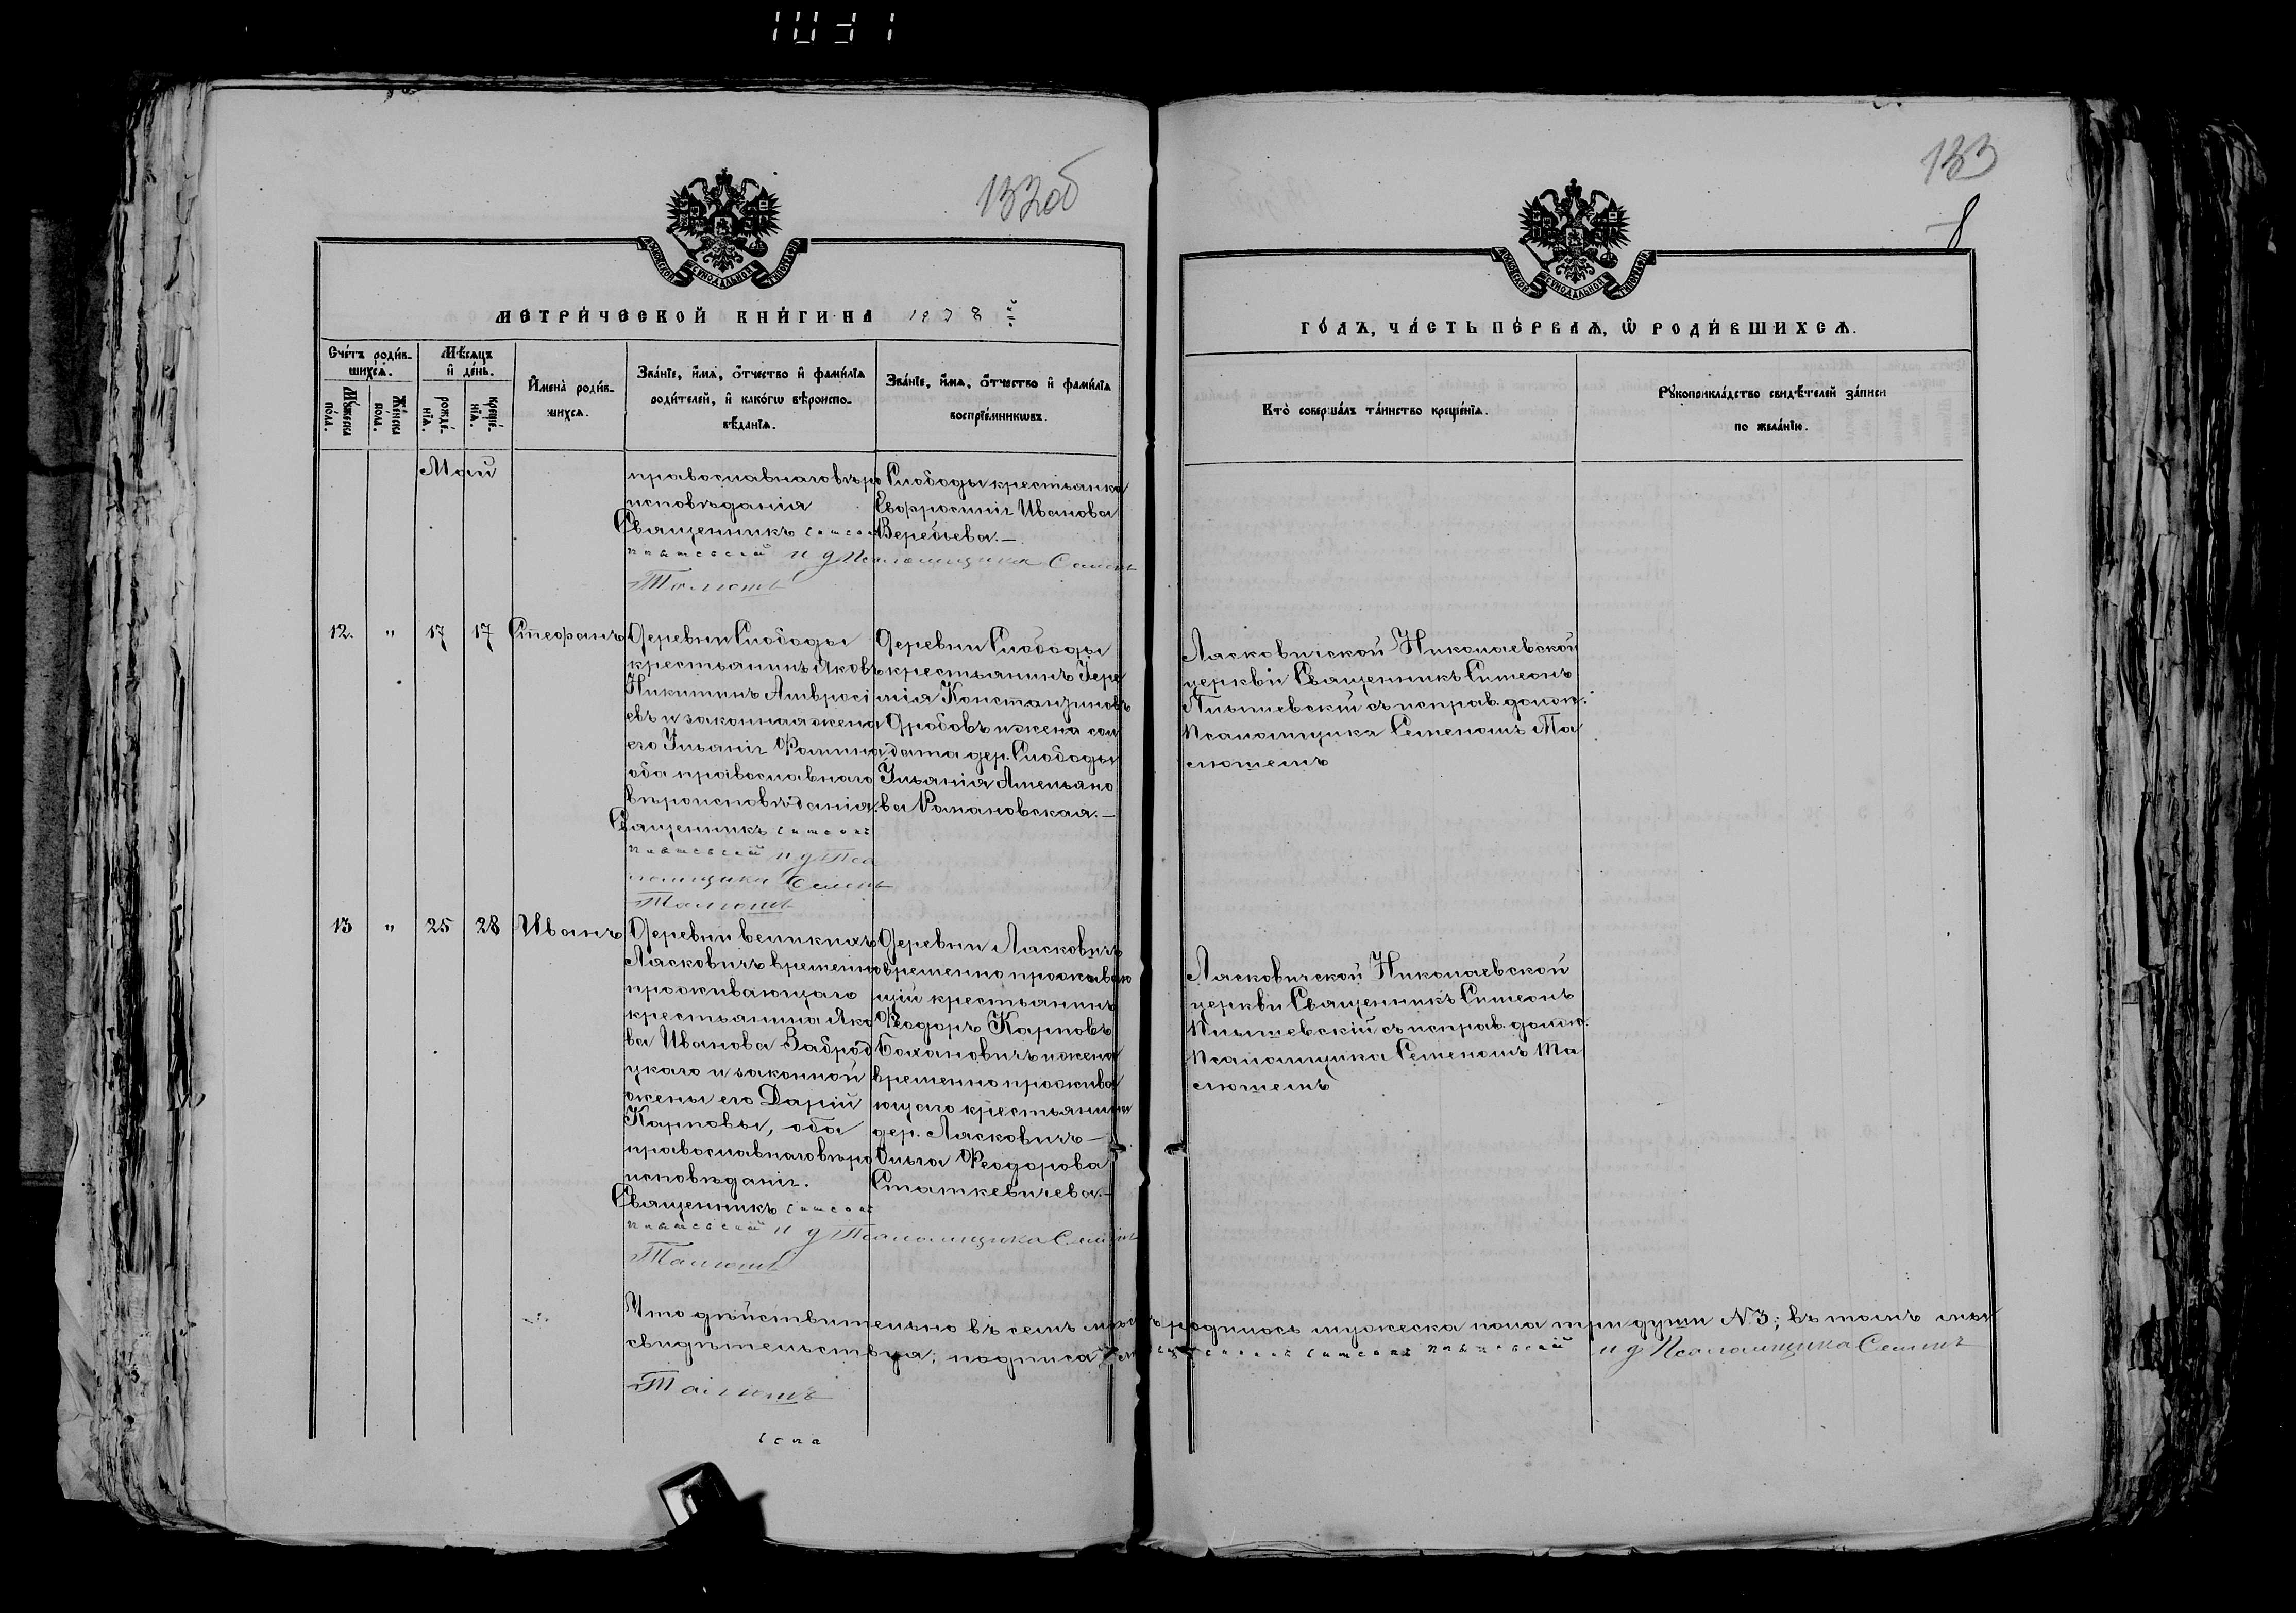 132об
133
8
МЕТРИ́ЧЕСКОЙ КНИ́ГИ НА 1878 й
ГО́ДЪ, ЧА́СТЬ ПЕ́РВАѦ, Ѽ РОДИ́ВШИХСѦ.
Сче́тъ роди́в-
шихсѧ.
Мꙋ́жеска
по́ла.
Же́нска
по́ла.
Мѣ́сѧцъ
и҆ де́нь.
рожде́-
нїѧ.
креще́-
нїѧ.
И҆мена̀ роди́в-
шихсѧ.
Зва́нїе, и҆́мѧ, ѻ҆́тчество и҆ фами́лїѧ
роди́телей, и҆ како́гѡ вѣроиспо-
вѣ́данїѧ.
Зва́нїе, и҆́мѧ, ѻ҆́тчество и҆ фами́лїѧ
воспрїе́мникѡвъ.
Кто̀ соверша́лъ та́инство креще́нїѧ.
Рꙋкоприкла́дство свидѣ́телей за́писи
по жела́нїю.
Май
православнаго вѣро
исповѣданія
Священникъ Симеонъ
и д Псаломщика Семенъ
Слободы крестьянка
Евфросинія Иванова
12. " 17 17 Стефанъ
Деревни Слободы
крестьянинъ Яковъ
Никитинъ Амвросі
евъ и законная жена
его Ульянія Фомина,
оба православнаго
вѣроисповѣданія.
Священникъ Симеонъ
и д Пса
ломщика Семенъ
Деревни Слободы
крестьянинъ Іере
мія Константиновъ
Дробовъ и жена сол
дата дер. Слободы
Ульянія Амельяно
ва Романовская.—
Лясковичской Николаевской
церкви Священникъ Симеонъ
съ исправ. долж.
Псаломщика Семеномъ Та
13 " 25 28 Иванъ
Деревни великихъ
Лясковичъ временно
проживающаго
крестьянина Яко
ва Иванова Заброд
цкаго и законной
жены его Даріи
Карповы, оба
православнаго вѣро
исповѣданія.
Священникъ Симеонъ
и д Псаломщика Семенъ
Деревни Лясковичъ
временно прожива
щій крестьянинъ
Ѳеодоръ Карповъ
Бохановичъ и жена
временно прожива
ющаго крестьянина
дер. Лясковичъ—
Ольга Ѳеодорова
Статкевичева.—
Лясковичской Николаевской
церкви Священникъ Симеонъ
съ исправ. долж.
Псаломщика Семеномъ Та
Что дѣйствительно въ семъ мѣсяцѣ родилось мужеска пола три души N 3; въ томъ мы
свидѣтельствуя; Священникъ Симеонъ и д Псаломщика Семенъ